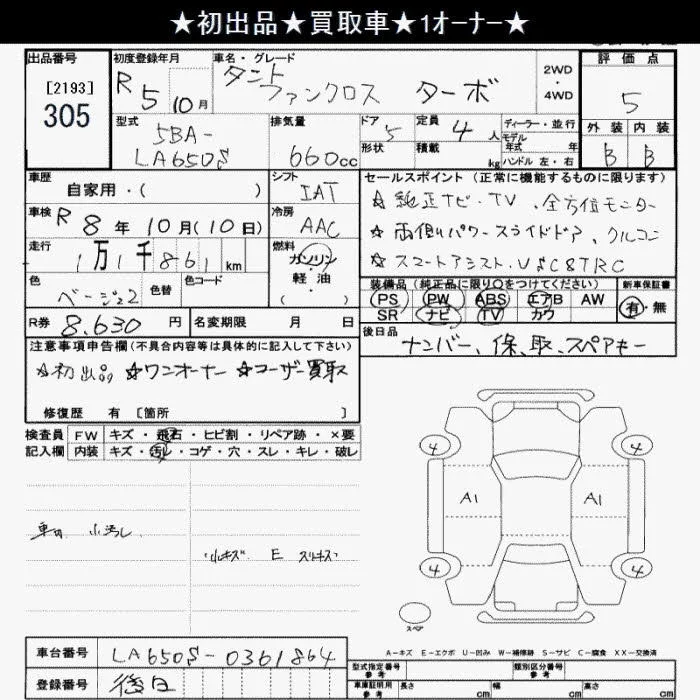 ★初出品★買取車★1オーナー★
出品番号 初度登録年月 車名・グレード 評価点
[2193] 305 R 5 10月 タント ファンクロス ターボ 2WD 4WD 5
型式 排気量 ドア 定員 ディーラー・並行 外装 内装
5BA-LA650S 660cc 5 4人 形状 積載 kg モデル年式 年 ハンドル 左・右 B B
車歴 シフト セールスポイント (正常に機能するものに限ります)
自家用・( ) IAT ★純正ナビ・TV、全方位モニター
車検 R8年10月(10日) 冷房 AAC ★両側パワースライドドア、クルコン
走行 1万1千861km 燃料 ガソリン・軽油・( ) ★スマートアシスト・VSC&TRC
色 色替 色コード 装備品 (純正品に限り○をつけてください) 新車保証書
ベージュ2 PS PW ABS エアB AW 有・無
SR ナビ TV カワ
R券 8,630円 名変期限 月 日 後日品
ナンバー、保、取、スペアキー
注意事項申告欄(不具合内容等は具体的に記入して下さい)
★初出品 ★ワンオーナー ★ユーザー買取
修復歴 有 [箇所 ]
検査員 FW キズ・飛石・ヒビ割・リペア跡・×要
記入欄 内装 キズ・汚レ・コゲ・穴・スレ・キレ・破レ
4 4
A1 A1
車内 小汚し
小キズ E スリキズ
4 4
スペア
A-キズ E-エクボ U-凹み W-補修跡 S-サビ C-腐食 XX-交換済
車台番号 LA650S-0361864 型式指定番号 参考 類別区分番号 参考
登録番号 後日 車庫証明用 参考 長さ cm 幅 cm 高さ cm